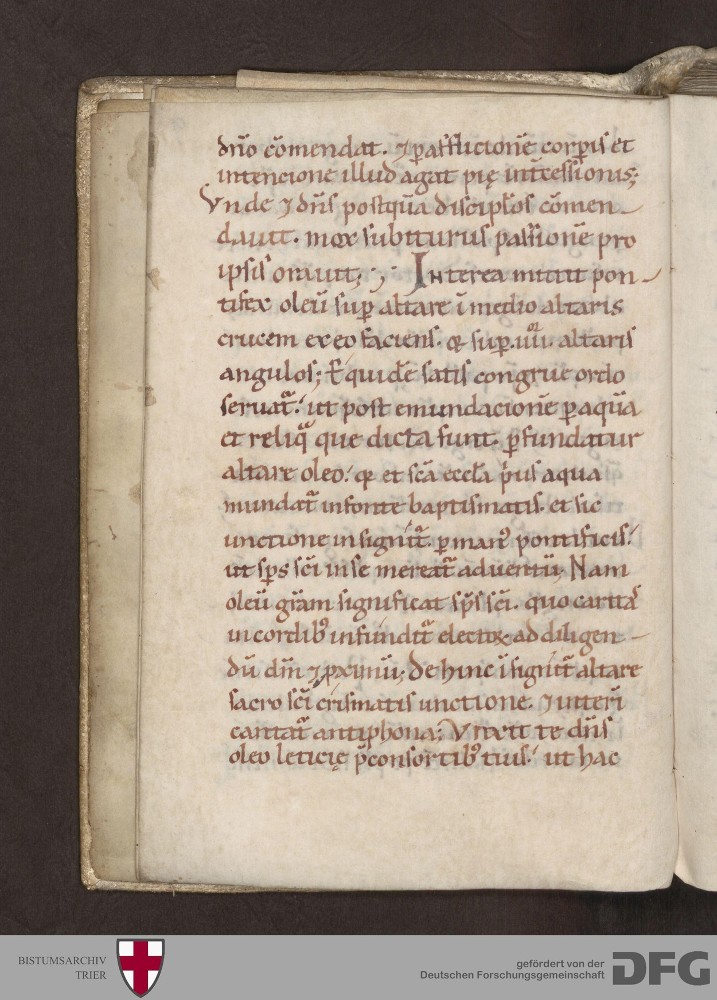 dn̄o cōmendat. ⁊ ꝑ afflictionē corꝑis et
intencione illud agat pię int̄cessionis;
Vnde ⁊ dn̄s postquā discipl̄os cōmen-
dauit. mox subiturus passionē pro
ipsis orauit; Interea mittit pon-
tifex oleū suꝑ altare ī medio altaris
crucem ex eo faciens. & suꝑ .iiii. altaris
angulos; Et quidē satis congrue ordo
seruat᷑. ut post emundacionē ꝑ aquā
et reliq̄ que dicta sunt. ꝑfundatur
altare oleo. & et sc̄a eccl̄a prius aqua
mundat᷑ in fonte baptismatis. et sic
unctione insignit᷑. ꝑ man⁹ pontificis.
ut sp̄s sc̄i in se mereat᷑ aduentū; Nam
oleū gr̄am significat sp̄s sc̄i. quo caritas
in cordib⁹ infundit᷑ electoꝝ ad diligen-
dū dm̄ ⁊ ꝓximū; Dehinc īsignit᷑ altare
sacro sc̄i crismatis unctione. ⁊ interī
cantat᷑ antiphona; Vnxit te dn̄s
oleo leticię p̄ consortib⁹ tuis. ut hac
BISTUMSARCHIV
TRIER
gefördert von der
Deutschen Forschungsgemeinschaft
DFG